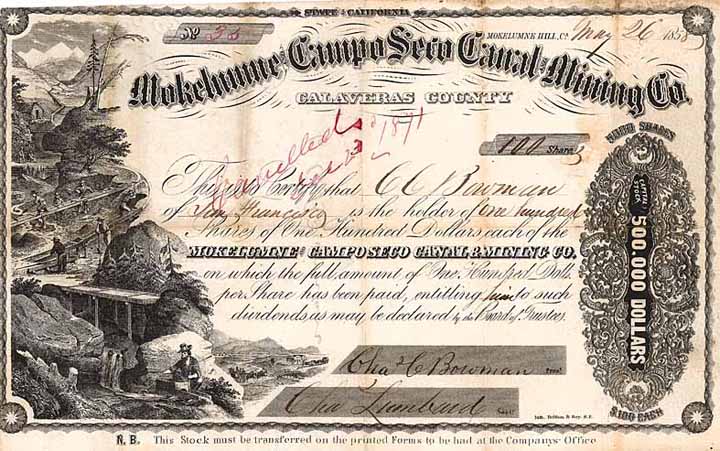 STATE OF CALIFORNIA
No 53
MOKELUMNE HILL, Ca. May 26 1858
Mokelumne and Campo Seco Canal and Mining Co.
CALAVERAS COUNTY
Cancelled 1871
100 Shares
This is to Certify that C C Bowman
of San Francisco is the holder of One hundred
Shares of One Hundred Dollars each of the
MOKELUMNE AND CAMPO SECO CANAL & MINING CO.
on which the full amount of One Hundred Dolls.
per Share has been paid, entitling him to such
dividends as may be declared by the Board of Trustees.
Chas C Bowman
Cha Lumbard Sec'y
5000 SHARES
CAPITAL STOCK
500.000 DOLLARS
$100 EACH
Lith. Britton & Rey S.F.
N.B. This Stock must be transferred on the printed Forms to be had at the Companys' Office